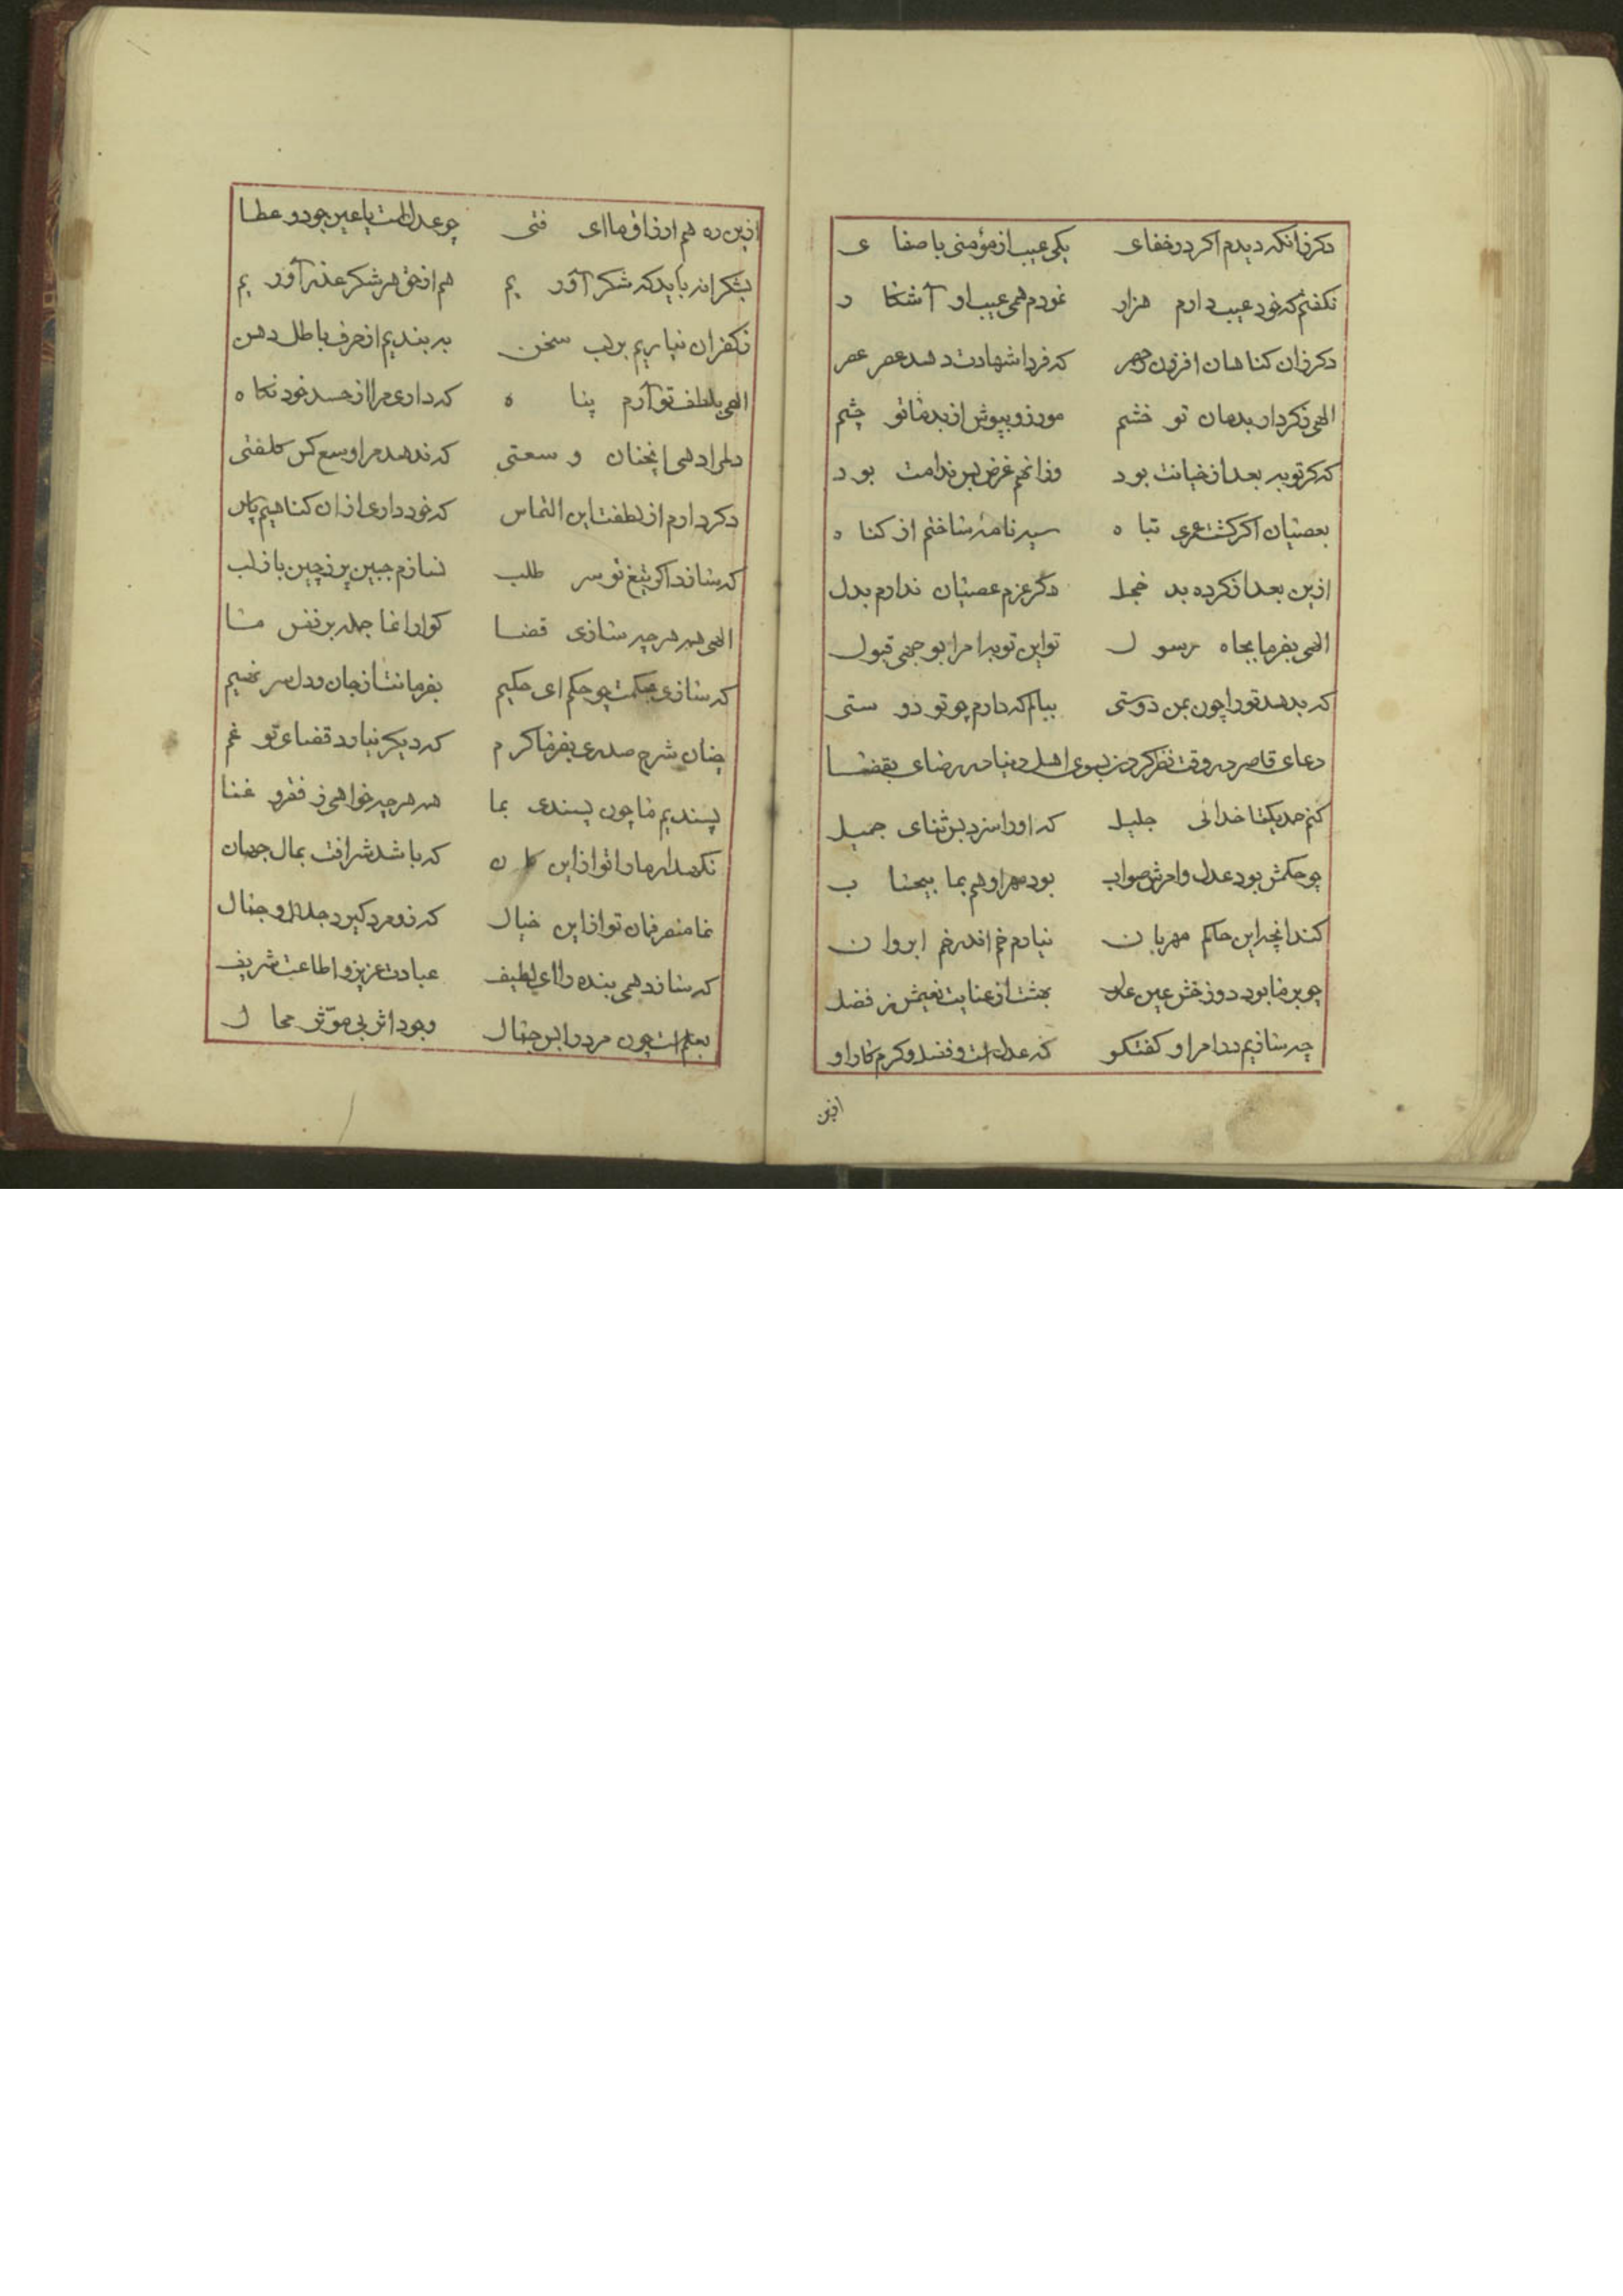 دکر زانکه دیدم اکر در خفای یکی عیب از مؤمنی با صفای
نکفتم که خود عیب دارم هزار نمودم همی عیب او آشکار
دکر زان کناهان افزون
که فردا شهادت دهد عصر عصر
الهی ز کردار بدمان تو خشم مورز و بپوش از بد ما تو چشم
که کر توبه بعد از خیانت بود وزانهم غرض بس ندامت بود
بعصیان اکر کشت عمری تباه سیه نامه ساختم از کناه
ازین بعد از کرده بد خجل دکر عزم عصیان ندارم بدل
الهی بفرما بجاه رسول تو این توبه را مرا بوجهی قبول
که بدهد تو را چون بمن دوستی ببالم که دارم چو تو دوستی
دعای قاصر در وقت نظر کردن بسوی اهل دنیا در رضای بقضا
کنم حمد یکتا خدائی جلیل که او را سزد بس ثنای جمیل
چو حکمش بود عدل و امرش صواب بود مهر او هم بما بیحساب
کند انچه این حاکم مهربان نیارم خم اندر خم ابروان
چو بر ما بود دوزخش عین عدل بهشت از عنایت نعیمش ز فضل
چه سازیم در امر او کفتکو که عدل است و فضل و کرم کار او
ازین
ازین ره هم ارزاق ما ای فتی چو عدل است یا عین جود و عطا
بشکرانه باید که شکر آوریم هم از حق هر شکر عذر آوریم
ز کفران نیاریم بر لب سخن به بندیم از حرف باطل دهن
الهی بلطف تو آرم پناه که داری مرا از حسد خود نکاه
دلم را دهی انچنان وسعتی که ندهد مرا وسع کس کلفتی
دکر دارم از لطفت این التماس که خود داری از ان کناهیم پاس
که سازد اکر تیغ تو سر طلب نسازم جبین پر ز چین یا ز لب
الهی هر چه سازی قضا کوارا نما جمله بر نفس ما
که سازی بحکمت چو حکم ای حکیم بفرمانت از جان و دل سر نهیم
چنان شرح صدری بفرما کرم که دیکر نیارد قضای تو غم
پسندیم ما چون پسندی بما هر چه خواهی ز فقر و غنا
نکهدار ما را تو از این کمان که باشد شرافت بمال جهان
نما منصرفمان تو از این خیال که زو مرد کیرد جلال و جمال
که سازد همی بنده را ای لطیف عبادت عزیز و اطاعت شریف
بعلم است چون مرد را بس جمال وجود اثر بی مؤثر محال